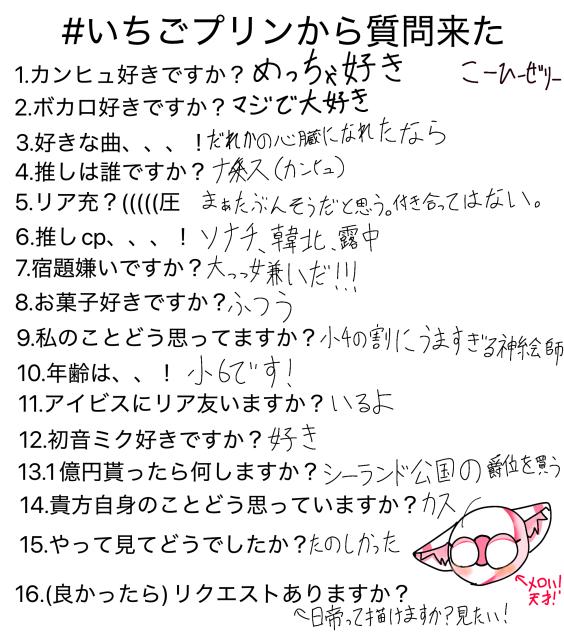 #いちごプリンから質問来た
1.カンヒュ好きですか? めっちゃ好き こーひーぜりー
2.ボカロ好きですか? マジで大好き
3.好きな曲、、、! だれかの心臓になれたなら
4.推しは誰ですか? ナ条ス(カンヒュ)
5.リア充?(((((圧 まぁたぶんそうだと思う。付き合ってはない。
6.推しcp、、、! ソナチ、韓北、露中
7.宿題嫌いですか? 大っっ女兼いだ!!!
8.お菓子好きですか? ふつう
9.私のことどう思ってますか? 小4の割にうますぎる神絵師
10.年齢は、、! 小6です!
11.アイビスにリア友いますか? いるよ
12.初音ミク好きですか? 好き
13.1億円貰ったら何しますか? シーランド公国の爵位を買う
14.貴方自身のことどう思っていますか? カス
15.やって見てどうでしたか? たのしかった
メロい!
天才!
16.(良かったら)リクエストありますか?
日帝って描けますか?見たい!